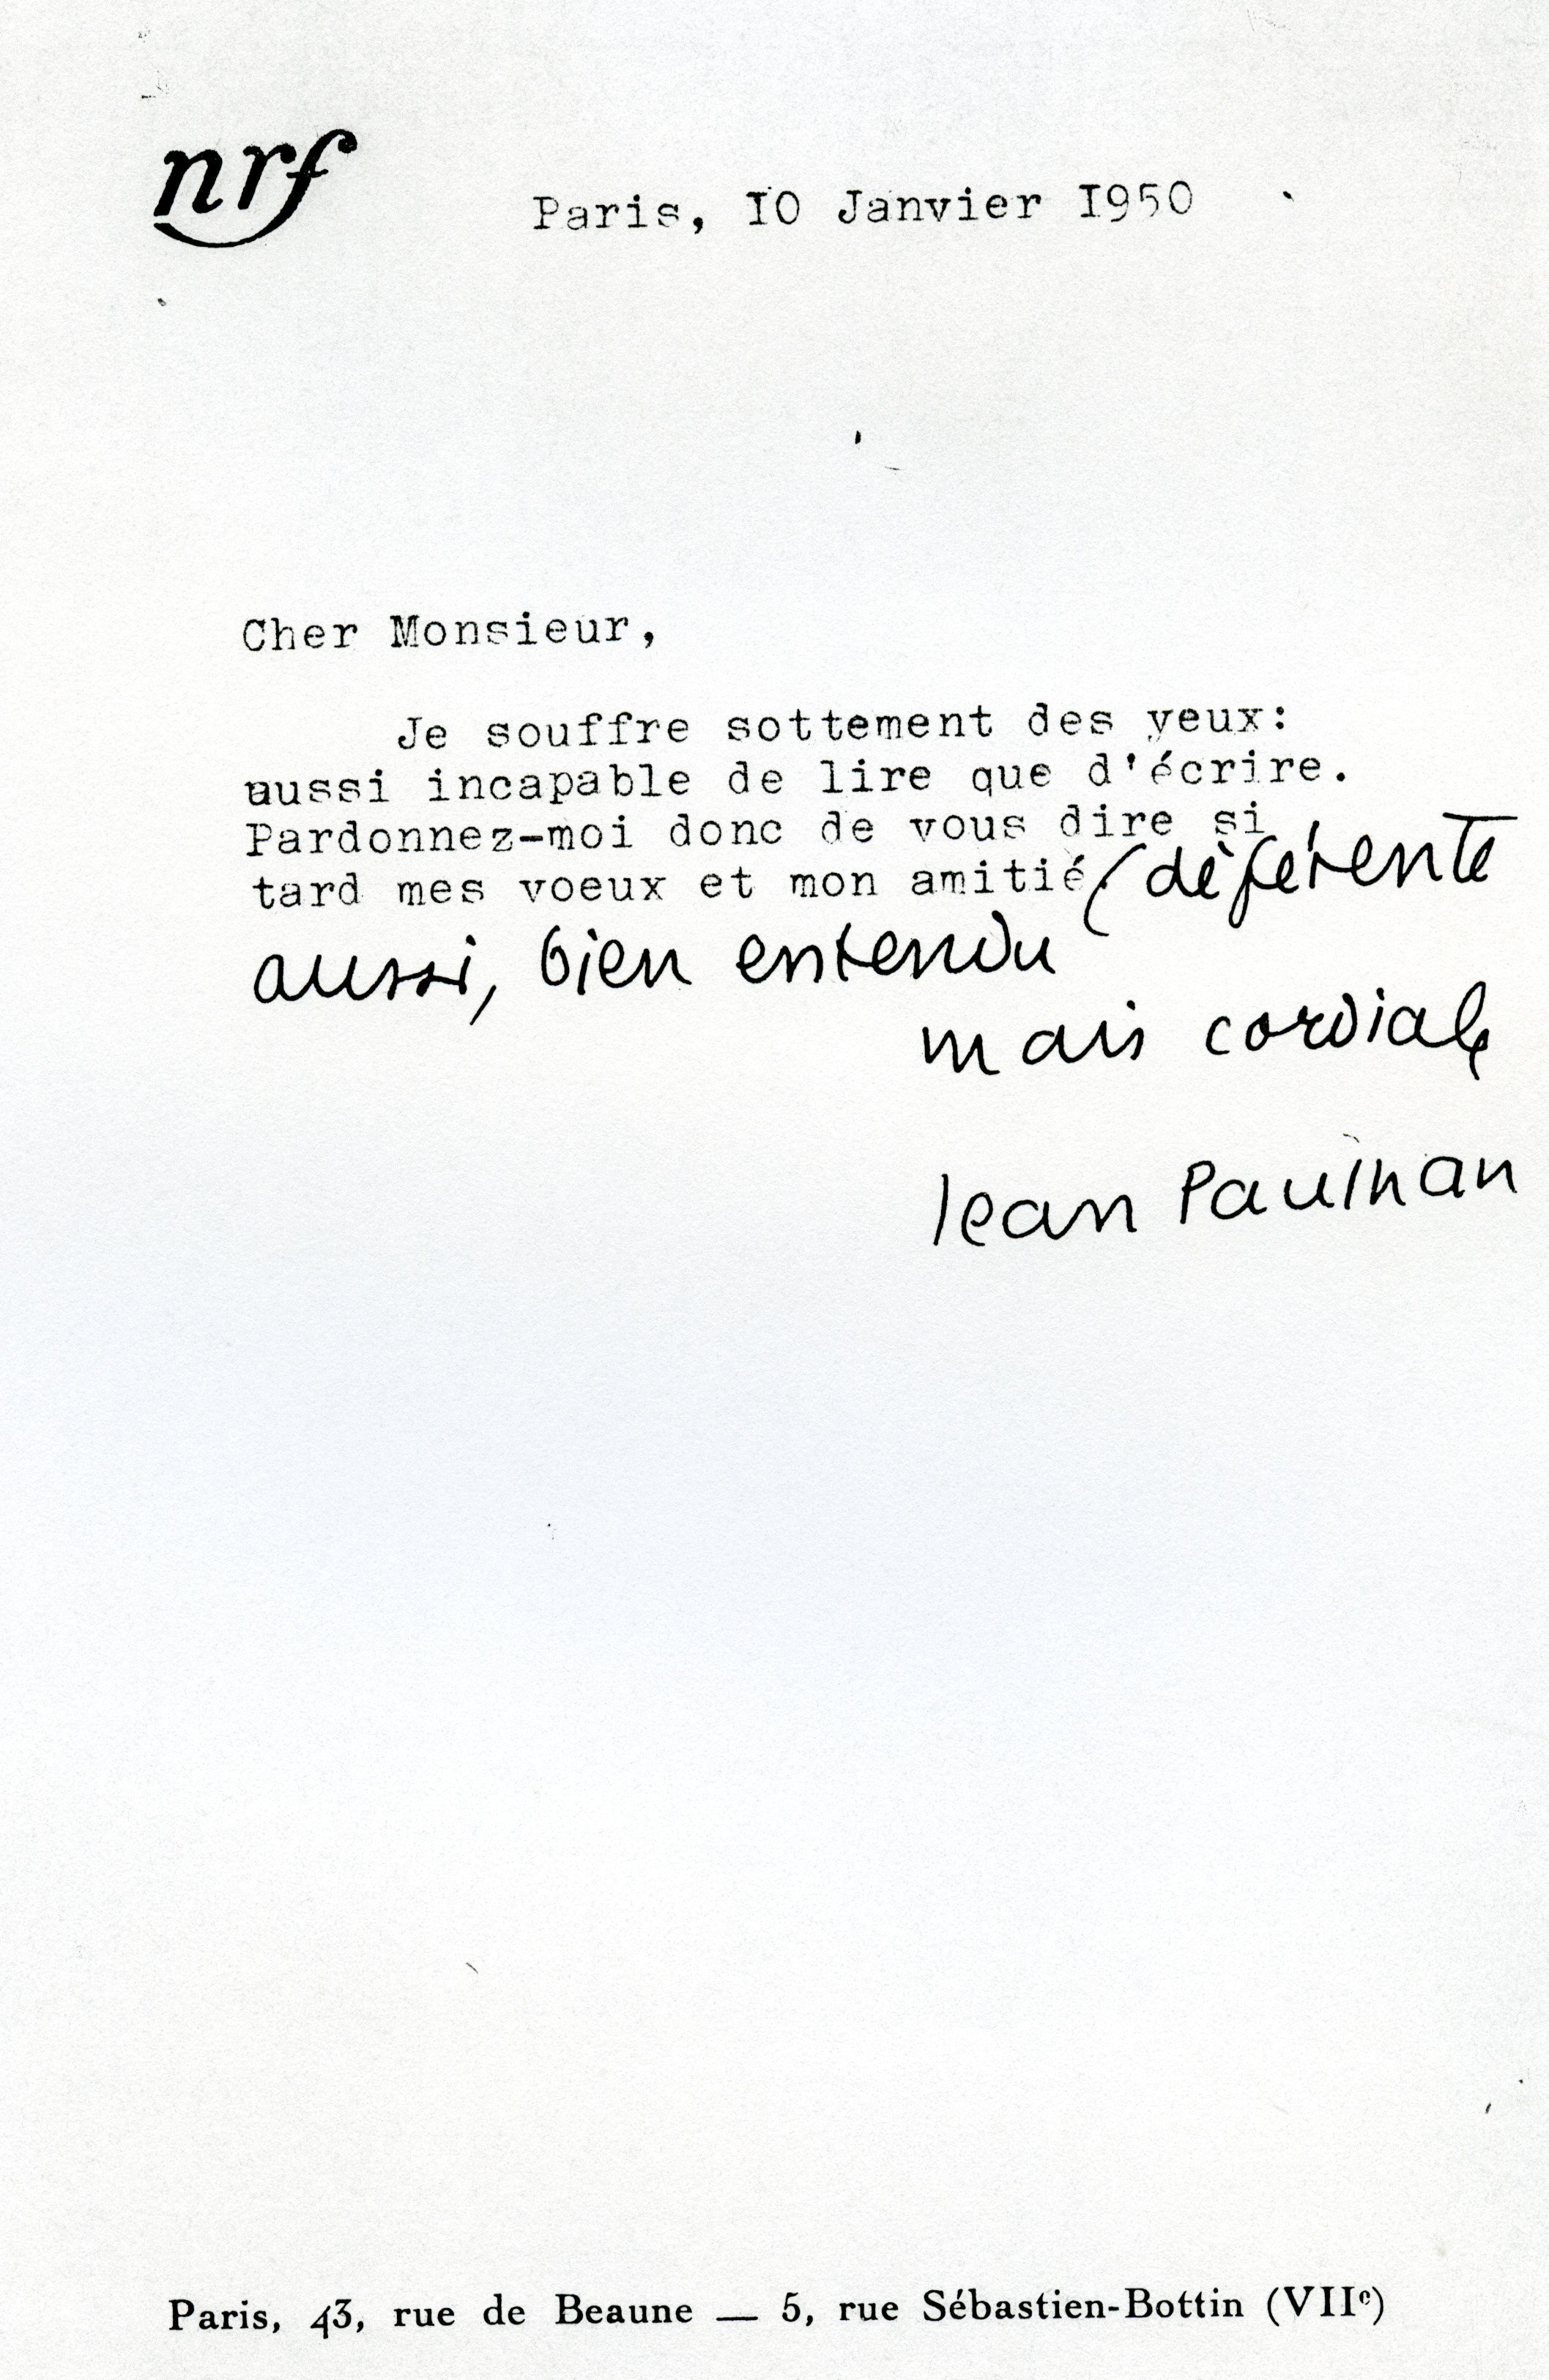 nrf
Paris, IO Janvier I950
Cher Monsieur,
Je souffre sottement des yeux:
aussi incapable de lire que d'écrire.
Pardonnez-moi donc de vous dire si
tard mes voeux et mon amitié. (déférente
aussi, bien entendu
mais cordiale
Jean Paulhan
Paris, 43, rue de Beaune — 5, rue Sébastien-Bottin (VIIe)